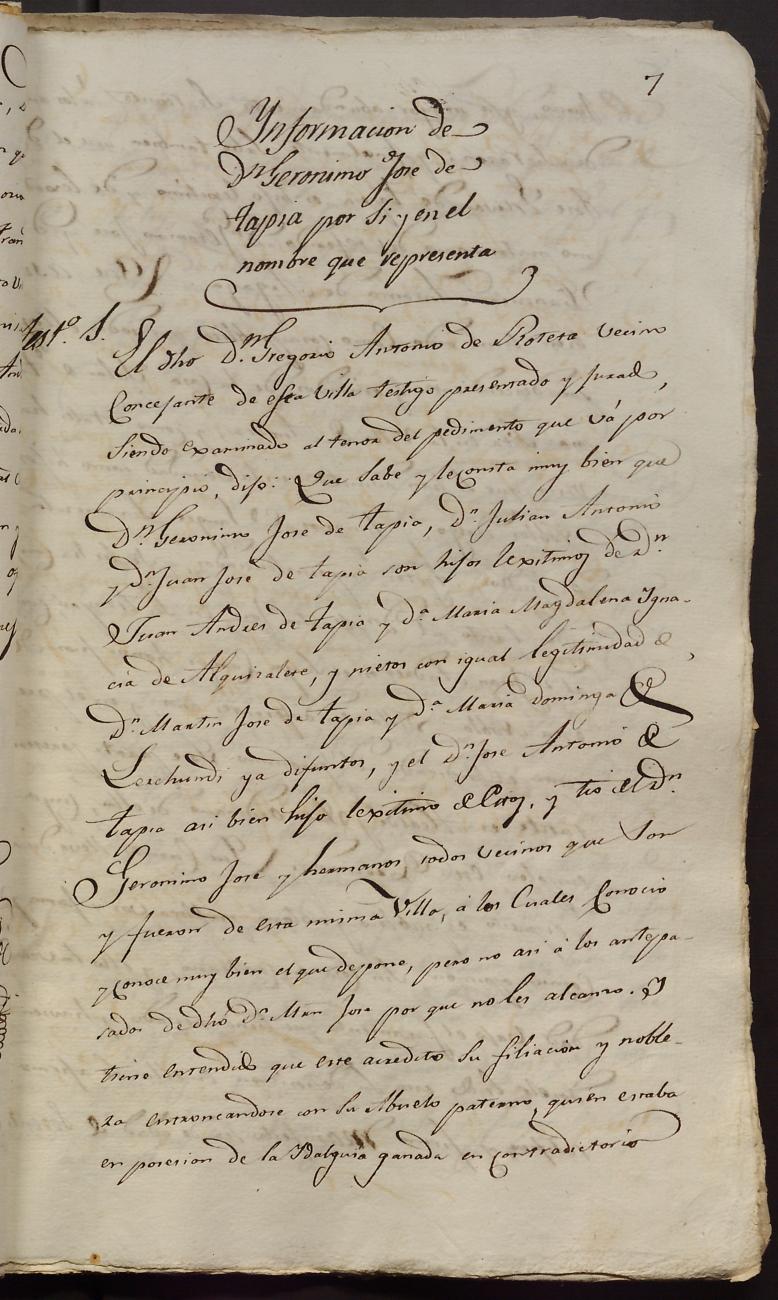 7
Ynformacion de
Dn Geronimo Jose de
tapia por si y en el
nombre que representa
test.º 1.
El dho D.n Gregorio Antonio de Roteta vecino
Concejante de esta Villa testigo presentado y Jurado,
siendo examinado al tenor del pedimento que vá por
principio, dijo: Que Sabe y le consta muy bien que
D.n Geronimo Jose de tapia, D.n Julian Antonio
y D.n Juan Jose de tapia son hijos lexitimos de D.n
Juan Andres de tapia y d.a Maria Magdalena Ygna-
cia de Alquizalete, y nietos con igual legitimidad de
D.n Martin Jose de tapia y D.a Maria Dominga de
Lerchundi ya difuntos, y el D.n Jose Antonio de
tapia asi bien hijo lexitimo de estos, y tio del D.n
Geronimo Jose y hermanos, todos vecinos que Son
y fueron de esta misma Villa, á los Cuales Conocio
y conoce muy bien el que depone, pero no asi á los antepa-
sados de dho D.n Mrn Jose por que no les alcanzo. Y
tiene entendido que este acredito su filiacion y noble-
za entroncandose con su Abuelo paterno, quien estaba
en posesion de la Ydalguia ganada en contradictorio